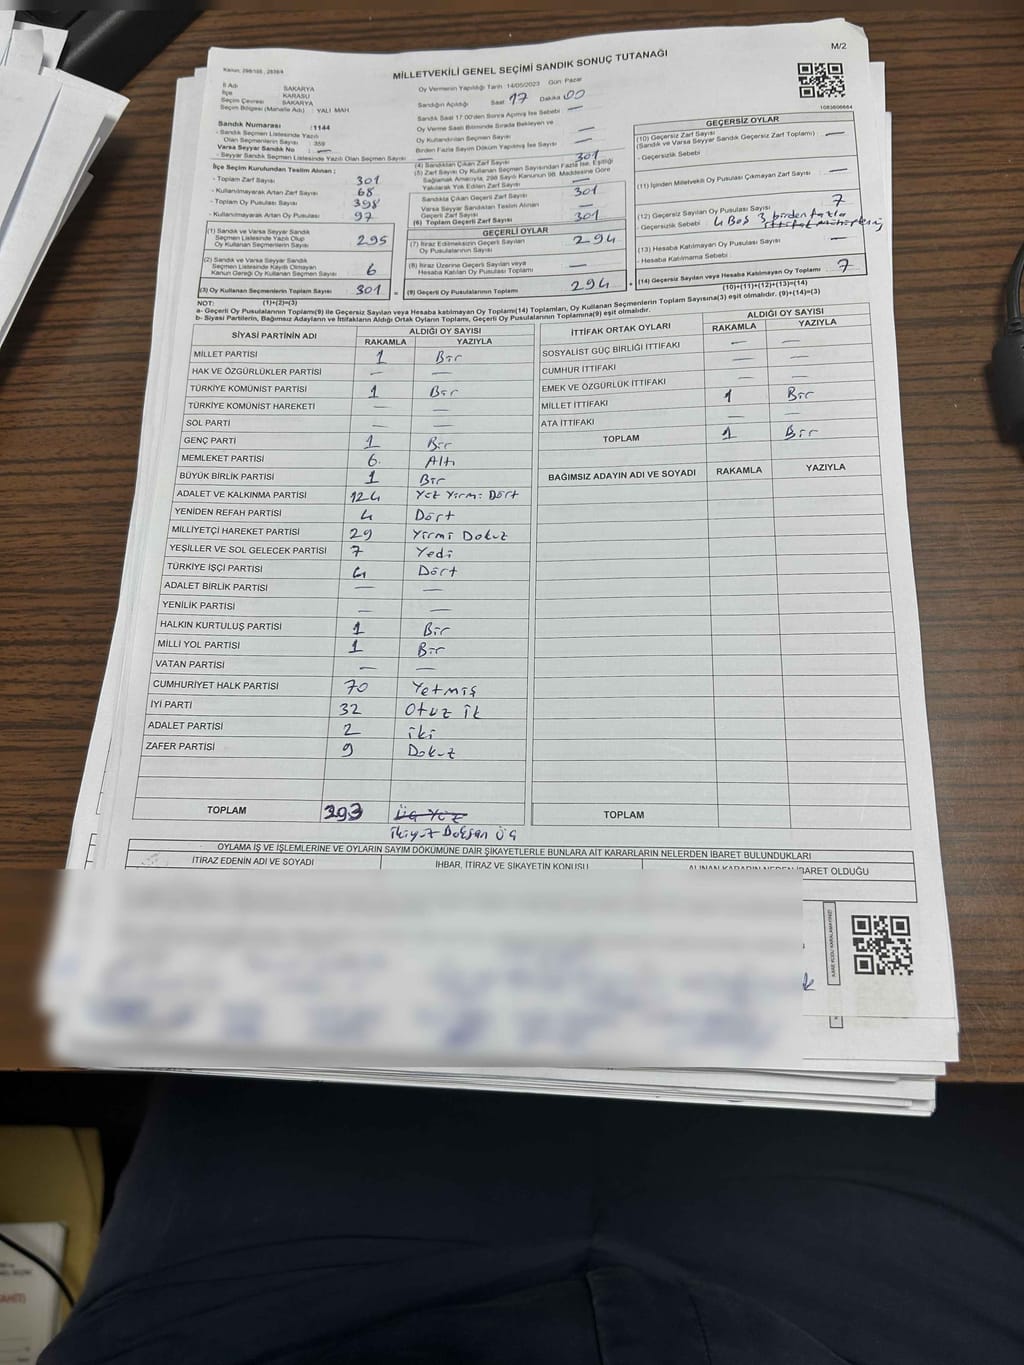 M/2
Kanun: 298/105 , 2839/4
MİLLETVEKİLİ GENEL SEÇİMİ SANDIK SONUÇ TUTANAĞI
İl Adı SAKARYA
İlçe KARASU
Seçim Çevresi SAKARYA
Seçim Bölgesi (Mahalle Adı) YALI MAH
Oy Vermenin Yapıldığı Tarih :14/05/2023 Gün: Pazar
Sandığın Açıldığı Saat 17 Dakika 00
Sandık Saat 17.00'den Sonra Açılmış İse Sebebi —
Oy Verme Saati Bitiminde Sırada Bekleyen ve
Oy Kullandırılan Seçmen Sayısı —
Birden Fazla Seçim Döküm Yapılmış İse Sayısı —
1083806664
Sandık Numarası :1144
- Sandık Seçmen Listesinde Yazılı
Olan Seçmenlerin Sayısı : 359
Varsa Seyyar Sandık No : —
- Seyyar Sandık Seçmen Listesinde Yazılı Olan Seçmen Sayısı —
İlçe Seçim Kurulundan Teslim Alınan ;
- Toplam Zarf Sayısı 301
- Kullanılmayarak Artan Zarf Sayısı 68
- Toplam Oy Pusulası Sayısı 398
- Kullanılmayarak Artan Oy Pusulası 97
(1) Sandık ve Varsa Seyyar Sandık
Seçmen Listesinde Yazılı Olup
Oy Kullanan Seçmenlerin Sayısı 295
(2) Sandık ve Varsa Seyyar Sandık
Seçmen Listesinde Kayıtlı Olmayan
Kanun Gereği Oy Kullanan Seçmen Sayısı 6
(3) Oy Kullanan Seçmenlerin Toplam Sayısı 301
(4) Sandıktan Çıkan Zarf Sayısı 301
(5) Zarf Sayısı Oy Kullanan Seçmen Sayısından Fazla İse, Eşitliği
Sağlamak Amacıyla, 298 Sayılı Kanunun 98. Maddesine Göre
Yakılarak Yok Edilen Zarf Sayısı —
Sandıkta Çıkan Geçerli Zarf Sayısı 301
Varsa Seyyar Sandıktan Teslim Alınan
Geçerli Zarf Sayısı —
(6) Toplam Geçerli Zarf Sayısı 301
GEÇERLİ OYLAR
(7) İtiraz Edilmeksizin Geçerli Sayılan
Oy Pusulalarının Sayısı 294
(8) İtiraz Üzerine Geçerli Sayılan veya
Hesaba Katılan Oy Pusulası Toplamı —
= (9) Geçerli Oy Pusulalarının Toplamı 294
GEÇERSİZ OYLAR
(10) Geçersiz Zarf Sayısı —
(Sandık ve Varsa Seyyar Sandık Geçersiz Zarf Toplamı)
- Geçersizlik Sebebi
(11) İçinden Milletvekili Oy Pusulası Çıkmayan Zarf Sayısı —
(12) Geçersiz Sayılan Oy Pusulası Sayısı 7
- Geçersizlik Sebebi : 4 Boş 3 birden fazla
(13) Hesaba Katılmayan Oy Pusulası Sayısı —
- Hesaba Katılmama Sebebi
+ (14) Geçersiz Sayılan veya Hesaba Katılmayan Oy Toplamı : 7
(1)+(2)=(3)
(10)+(11)+(12)+(13)=(14)
NOT:
a- Geçerli Oy Pusulaları Toplamı(9) ile Geçersiz Sayılan veya Hesaba katılmayan Oy Toplamı(14) Toplamları, Oy Kullanan Seçmenlerin Toplam Sayısına(3) eşit olmalıdır. (9)+(14)=(3)
b- Siyasi Partilerin, Bağımsız Adayların ve İttifakların Aldığı Ortak Oyların Toplamı, Geçerli Oy Pusulalarının Toplamına(9) eşit olmalıdır.
SİYASİ PARTİNİN ADI ALDIĞI OY SAYISI
RAKAMLA YAZIYLA
MİLLET PARTİSİ 1 Bir
HAK VE ÖZGÜRLÜKLER PARTİSİ — —
TÜRKİYE KOMÜNİST PARTİSİ 1 Bir
TÜRKİYE KOMÜNİST HAREKETİ — —
SOL PARTİ — —
GENÇ PARTİ 1 Bir
MEMLEKET PARTİSİ 6 Altı
BÜYÜK BİRLİK PARTİSİ 1 Bir
ADALET VE KALKINMA PARTİSİ 124 Yüz Yirmi Dört
YENİDEN REFAH PARTİSİ 4 Dört
MİLLİYETÇİ HAREKET PARTİSİ 29 Yirmi Dokuz
YEŞİLLER VE SOL GELECEK PARTİSİ 7 Yedi
TÜRKİYE İŞÇİ PARTİSİ 4 Dört
ADALET BİRLİK PARTİSİ — —
YENİLİK PARTİSİ — —
HALKIN KURTULUŞ PARTİSİ 1 Bir
MİLLİ YOL PARTİSİ 1 Bir
VATAN PARTİSİ — —
CUMHURİYET HALK PARTİSİ 70 Yetmiş
İYİ PARTİ 32 Otuz ik
ADALET PARTİSİ 2 iki
ZAFER PARTİSİ 9 Dokuz
TOPLAM 293 Üç Yüz
ikiyüz Doksan Üç
İTTİFAK ORTAK OYLARI ALDIĞI OY SAYISI
RAKAMLA YAZIYLA
SOSYALİST GÜÇ BİRLİĞİ İTTİFAKI — —
CUMHUR İTTİFAKI — —
EMEK VE ÖZGÜRLÜK İTTİFAKI — —
MİLLET İTTİFAKI 1 Bir
ATA İTTİFAKI — —
TOPLAM 1 Bir
BAĞIMSIZ ADAYIN ADI VE SOYADI RAKAMLA YAZIYLA
TOPLAM
OYLAMA İŞ VE İŞLEMLERİNE VE OYLARIN SAYIM DÖKÜMÜNE DAİR ŞİKAYETLERLE BUNLARA AİT KARARLARIN NELERDEN İBARET BULUNDUKLARI
İTİRAZ EDENİN ADI VE SOYADI İHBAR, İTİRAZ VE ŞİKAYETİN KONUSU ALINAN KARARIN NEDEN İBARET OLDUĞU